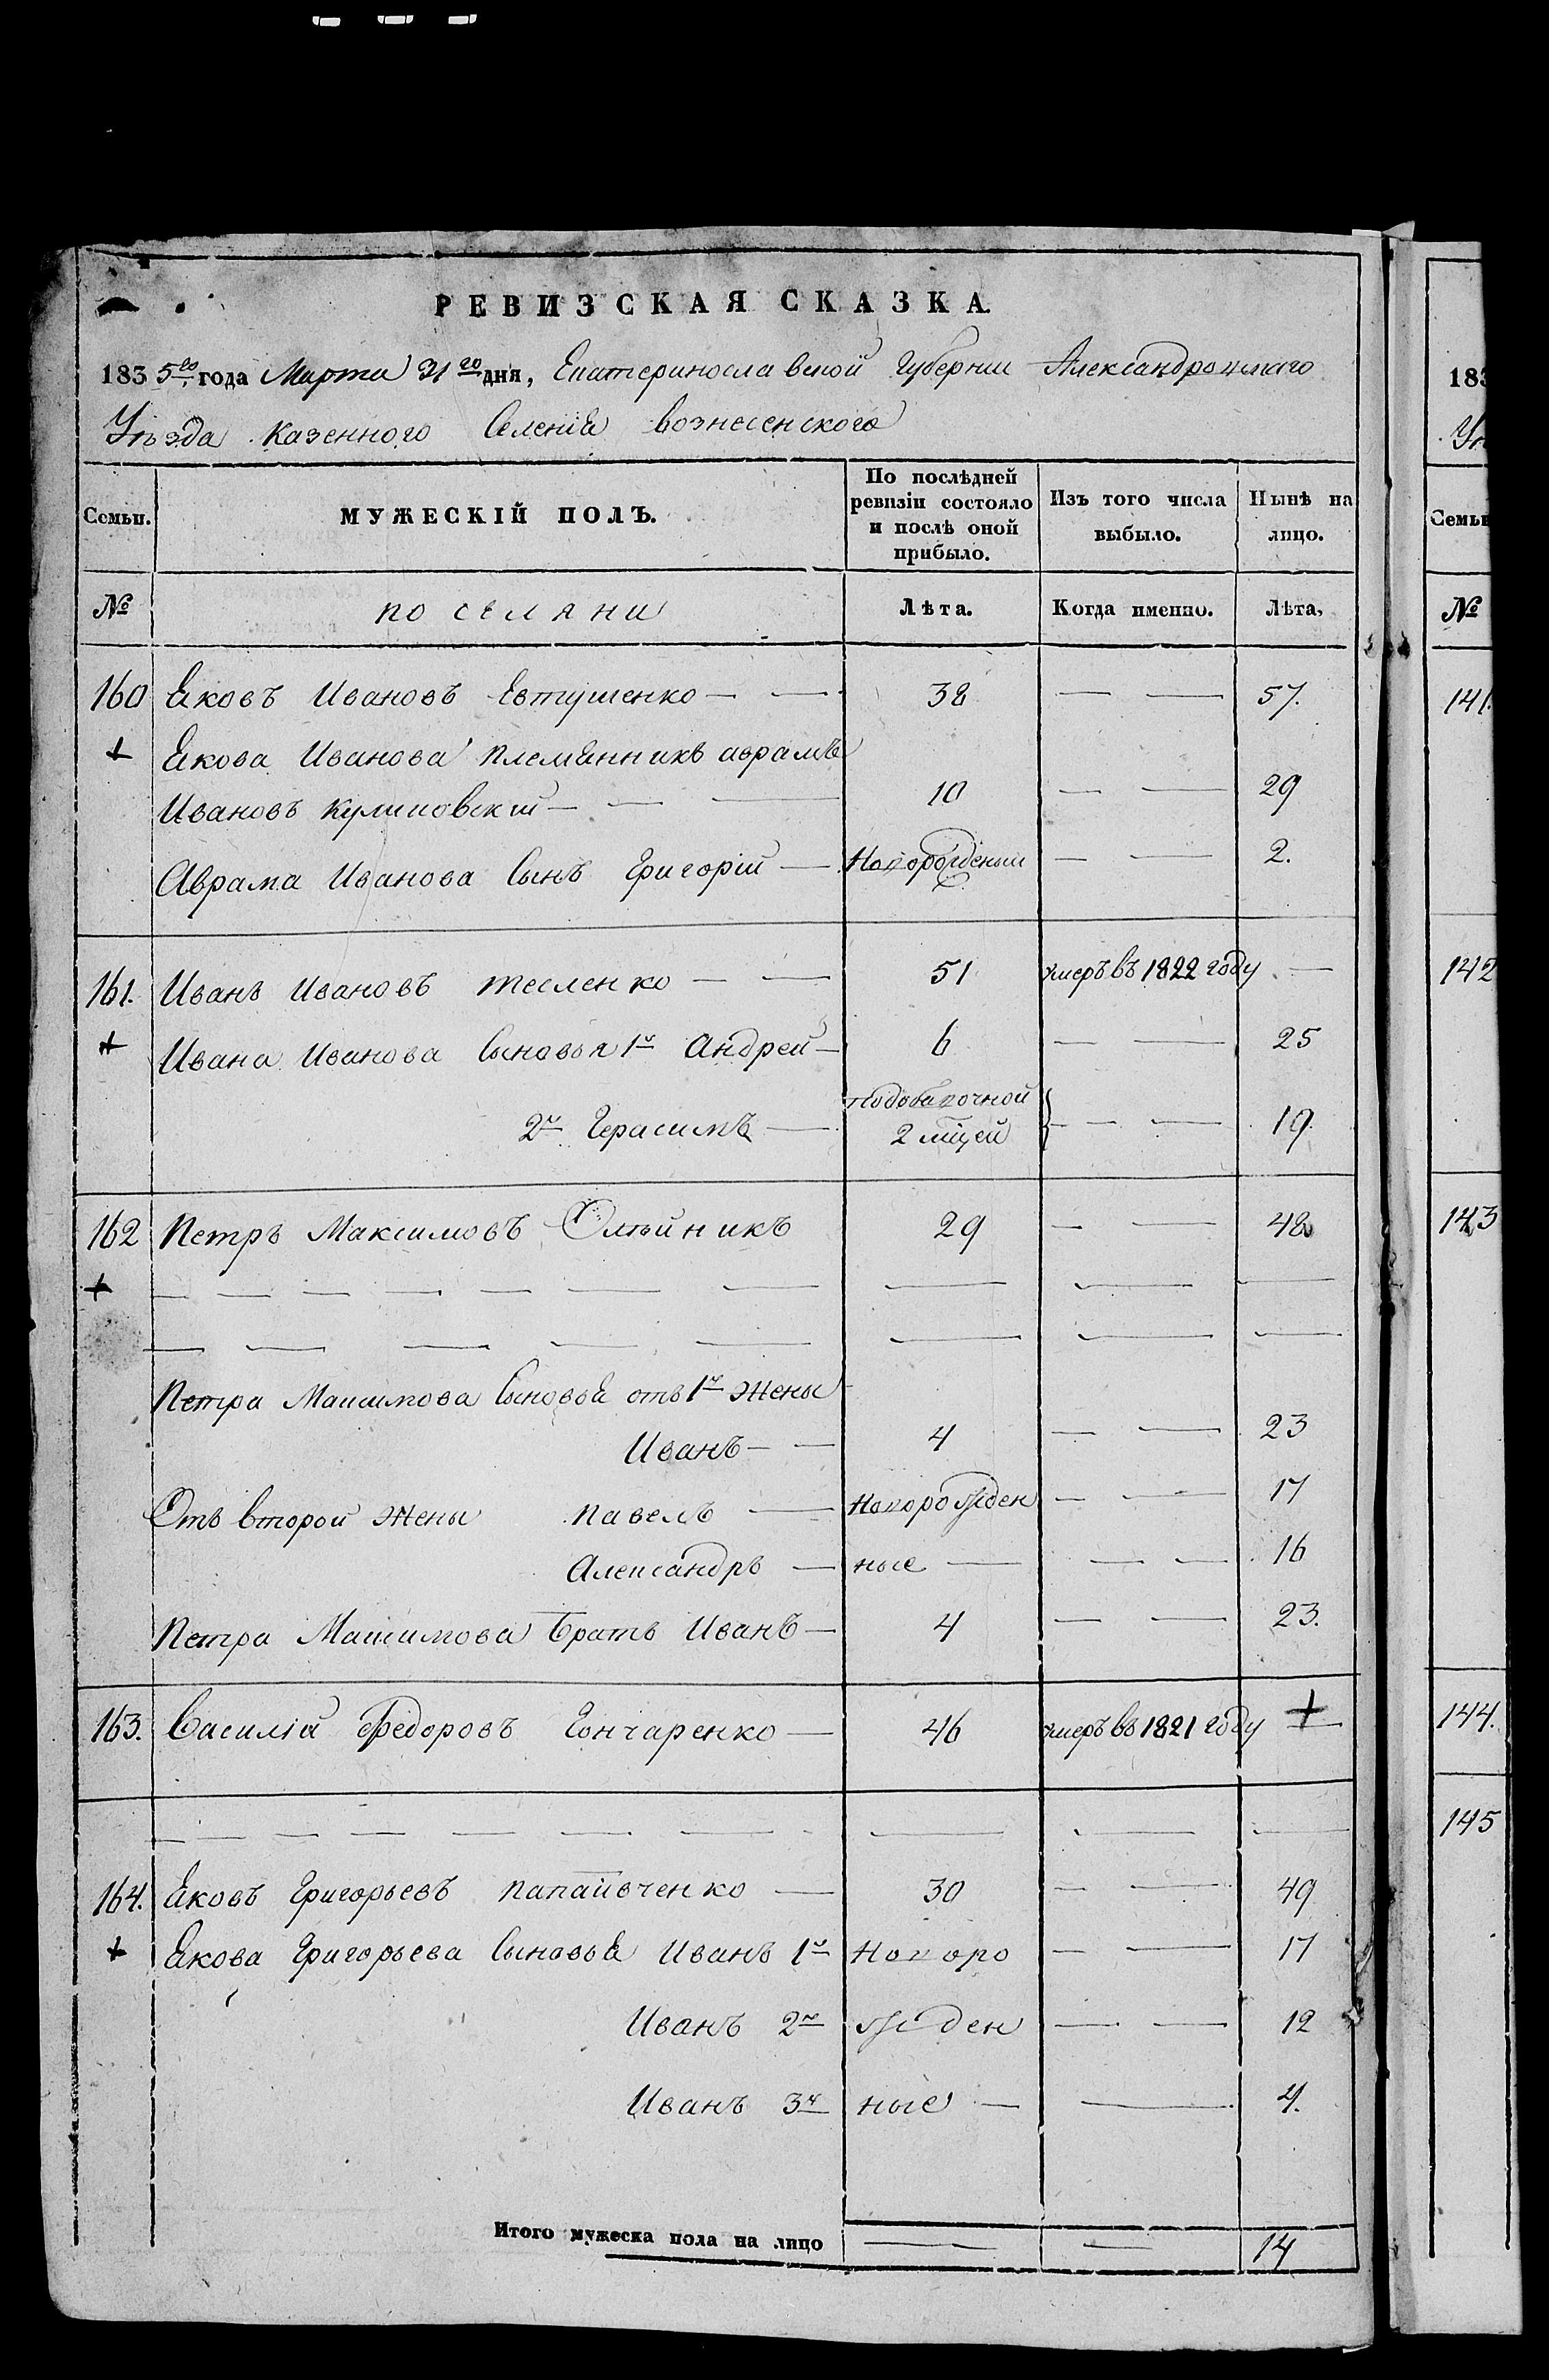 РЕВИЗСКАЯ СКАЗКА.
1835го года Марта 31го дня, Екатеринославской Губернии Александровскаго
Уѣзда Казенного Селенія вознесенского
Семьи. МУЖЕСКІЙ ПОЛЪ. По послѣдней ревизіи состояло и послѣ оной прибыло. Изъ того числа выбыло. Нынѣ на лицо.
№ поселяни Лѣта. Когда именно. Лѣта.
160 Яковъ Ивановъ Евтушенко — — 38 — — 57.
Якова Иванова племянникъ аврамъ
Ивановъ Куликовскій — — — 10 — — 29
Аврама Иванова Сынъ Григорій — Новорожденый — — 2.
161. Иванъ Ивановъ тесленко — — 51 умеръ въ 1822 году —
Ивана Иванова Сыновья 1й Андрей — 6 — — 25
2й Герасимъ — 19.
162 Петръ Максимовъ Олейникъ 29 — — 48
Петра Максимова Сыновья отъ 1й жены
Иванъ — — 4 — — 23
Отъ второй жены павелъ — Новорожден — — 17
Александръ — ные — — — 16
Петра Максимова Братъ Иванъ — 4 — — 23.
163. Василій Федоровъ Гончаренко — 46 умеръ въ 1821 году —
164. Яковъ Григорьевъ папайвченко — 30 — — 49
Якова Григорьева Сыновья Иванъ 1й Новоро — — 17
Иванъ 2й жден — — 12
Иванъ 3й ные — — 4.
Итого мужеска пола на лицо — — 14
183
Уѣ
Семьи
№
141.
142
143
144.
145